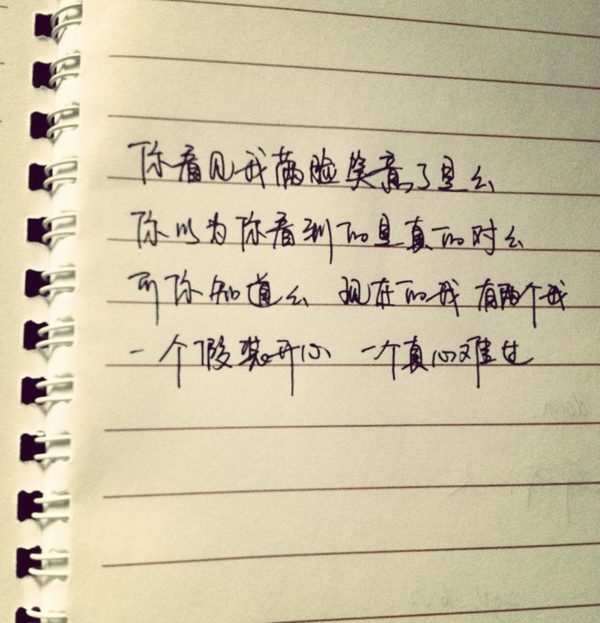 你看见我满脸笑意了是么
你以为你看到的是真的对么
可你知道么 现在的我 有两个我
一个假装开心 一个真心难过